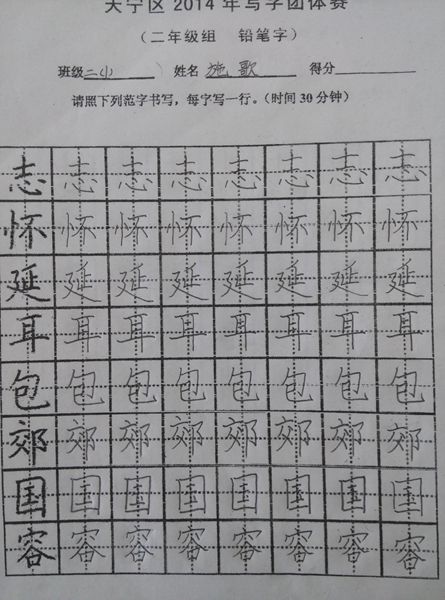 天宁区 2014 年写字团体赛
（二年级组 铅笔字）
班级二(1) 姓名 施歌 得分
请照下列范字书写，每字写一行。（时间 30 分钟）
志 志 志 志 志 志 志 志
怀 怀 怀 怀 怀 怀 怀 怀
延 延 延 延 延 延 延 延
耳 耳 耳 耳 耳 耳 耳 耳
包 包 包 包 包 包 包 包
郊 郊 郊 郊 郊 郊 郊 郊
国 国 国 国 国 国 国 国
容 容 容 容 容 容 容 容